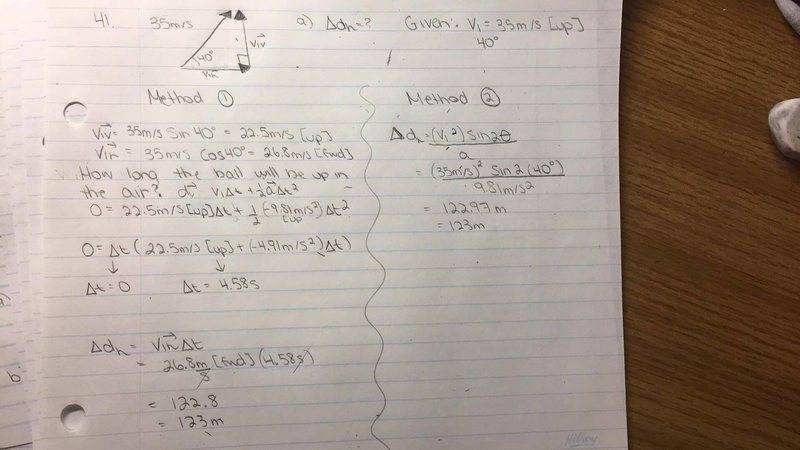 41. 35m/s a) Δdh=? Given: V1 = 35m/s [up]
40°
40° V1v
V1h
Method ① 
V1v = 35m/s Sin 40° = 22.5m/s [up]
V1h = 35m/s Cos40° = 26.8m/s [fwd]
How long the ball will be up in
the air? d V1Δt + ½aΔt²
0 = 22.5m/s [up]Δt + 1/2 (-9.81m/s²)Δt²
[up]
0 = Δt (22.5m/s [up] + (-4.91m/s²)Δt)
↓ ↓
Δt = 0 Δt = 4.58s
Δdh = V1hΔt
= 26.8m/s [fwd] (4.58s)
= 122.8
= 123m
Method ②
Δdh = (V1²) Sin2θ / a
= (35m/s)² Sin 2 (40°) / 9.81m/s²
= 122.97m
= 123m
b.
Hilroy